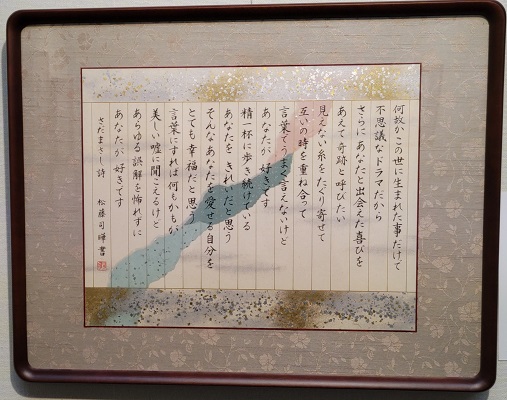 何故かこの世に生まれた事だけで
不思議なドラマだから
さらにあなたと出会えた喜びを
あえて奇跡と呼びたい
見えない糸をたぐり寄せて
互いの時を重ね合って
言葉でうまく言えないけど
あなたが好きです
精一杯に歩き続けている
あなたをきれいだと思う
そんなあなたを愛せる自分を
とても幸福だと思う
言葉にすれば何もかもが
美しい嘘に聞こえるけど
あらゆる誤解を怖れずに
あなたが好きです
さだまさし詩 松藤司曄書